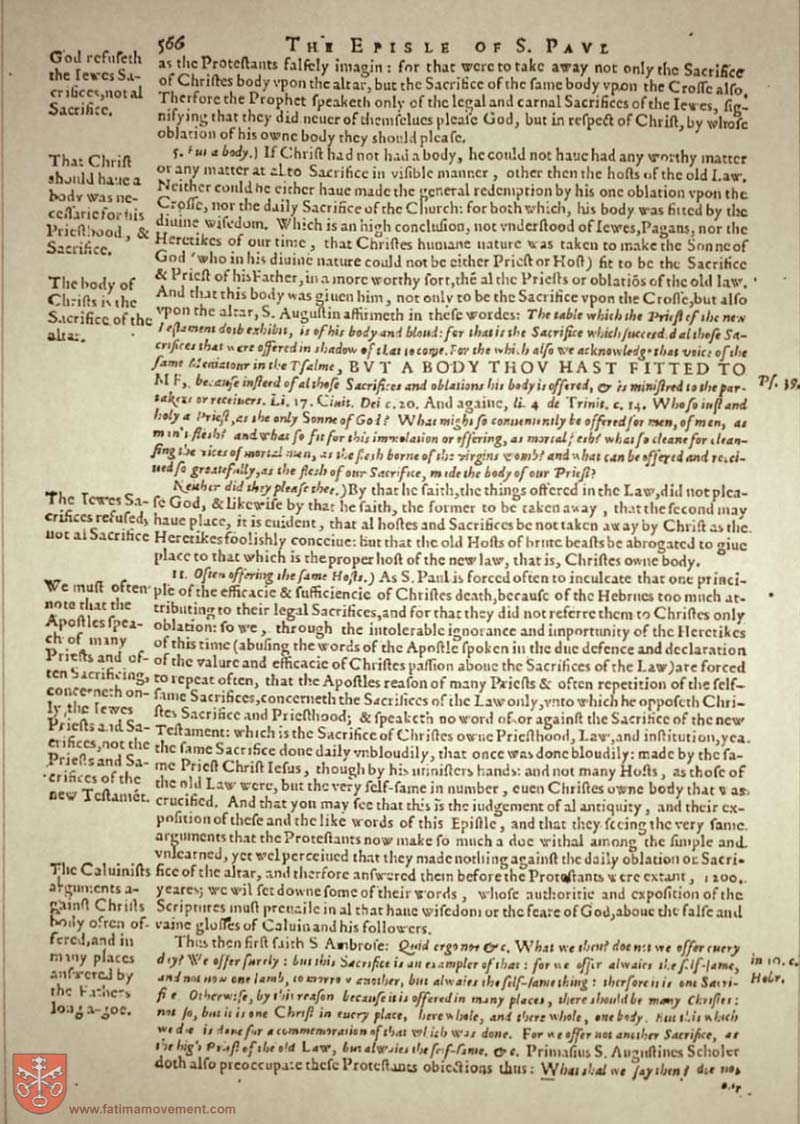 566 THE EPISLE OF S. PAVL
God refuſeth
the Iewes Sa-
crifices, not al
Sacrifice.
That Chriſt
should haue a
body was ne-
ceſſarie for his
Prieſthood, &
Sacrifice.
The body of
Chriſts is the
Sacrifice of the
altar.
The Iewes Sa-
crifices refuſed,
not al Sacrifice
We muſt often
note that the
Apoſtles ſpea-
ch of many
Prieſts and of-
ten Sacrificing,
concerneth on-
ly, the Iewes
Prieſts and Sa-
crifices, not the
Prieſts and Sa-
crifices of the
new Teſtamēt.
The Caluiniſts
arguments a-
gainſt Chriſts
body often of-
fered, and in
many places
anſwered by
the Fathers
long a-goe.
as the Proteſtants falſely imagin: for that were to take away not only the Sacrifice
of Chriſtes body vpon the altar, but the Sacrifice of the ſame body vpon the Croſſe alſo.
Therfore the Prophet ſpeaketh only of the legal and carnal Sacrifices of the Iewes, ſig-
nifying that they did neuer of themſelues pleaſe God, but in reſpect of Chriſt, by whoſe
oblation of his owne body they should pleaſe.
5. But a body.) If Chriſt had not had a body, he could not haue had any worthy matter
or any matter at al to Sacrifice in viſible manner, other then the hoſts of the old Law.
Neither could he either haue made the general redemption by his one oblation vpon the
Croſſe, nor the daily Sacrifice of the Church: for both which, his body was fitted by the
diuine wiſedom. Which is an high concluſion, not vnderſtood of Iewes, Pagans, nor the
Heretikes of our time, that Chriſtes humane nature was taken to make the Sonne of
God (who in his diuine nature could not be either Prieſt or Hoſt) fit to be the Sacrifice
& Prieſt of his Father, in a more worthy ſort, thē al the Prieſts or oblatiōs of the old law.
And that this body was giuen him, not only to be the Sacrifice vpon the Croſſe, but alſo
vpon the altar, S. Auguſtin affirmeth in theſe wordes: The table which the Prieſt of the new
Teſtament doth exhibit, is of his body and bloud: for that is the Sacrifice which ſucceeded al thoſe Sa-
crifices that were offered in shadow of that to come. For the which alſo we acknowledge that voice of the
ſame Mediatour in the Pſalme, BVT A BODY THOV HAST FITTED TO
ME, becauſe inſteed of al thoſe Sacrifices and oblations his body is offered, & is miniſtred to the par-
takers or receiuers. Li. 17. Ciuit. Dei c. 20. And againe, li. 4 de Trinit. c. 14. Who ſo iuſt and
holy a Prieſt, as the only Sonne of God? What might ſo conueniently be offered for men, of men, as
man's flesh? and what ſo fit for this immolation or offering, as mortal flesh? what ſo cleane for clean-
ſing the vices of mortal men, as the flesh borne of the virgins womb? and what can be offered and recei-
ued ſo greatefully, as the flesh of our Sacrifice, made the body of our Prieſt?
Neither did they pleaſe thee.) By that he ſaith, the things offered in the Law, did not plea-
ſe God, & likewiſe by that he ſaith, the former to be taken away, that the ſecond may
haue place, it is euident, that al hoſtes and Sacrifices be not taken away by Chriſt as the
Heretikes foolishly conceiue: but that the old Hoſts of brute beaſts be abrogated to giue
place to that which is the proper hoſt of the new law, that is, Chriſtes owne body.
11. Often offering the ſame Hoſts.) As S. Paul is forced often to inculcate that one princi-
ple of the efficacie & ſufficiencie of Chriſtes death, becauſe of the Hebrues too much at-
tributing to their legal Sacrifices, and for that they did not referre them to Chriſtes only
oblation: ſo we, through the intolerable ignorance and importunity of the Heretikes
of this time (abuſing the words of the Apoſtle ſpoken in the due defence and declaration
of the valure and efficacie of Chriſtes paſſion aboue the Sacrifices of the Law) are forced
to repeat often, that the Apoſtles reaſon of many Prieſts & often repetition of the ſelf-
ſame Sacrifices, concerneth the Sacrifices of the Law only, vnto which he oppoſeth Chri-
ſtes Sacrifice and Prieſthood; & ſpeaketh no word of or againſt the Sacrifice of the new
Teſtament: which is the Sacrifice of Chriſtes owne Prieſthood, Law, and inſtitution, yea
the ſame Sacrifice done daily vnbloudily, that once was done bloudily: made by the ſa-
me Prieſt Chriſt Ieſus, though by his miniſters hands: and not many Hoſts, as thoſe of
the old Law were, but the very ſelf-ſame in number, euen Chriſtes owne body that was
crucified. And that you may ſee that this is the iudgement of al antiquity, and their ex-
poſition of theſe and the like words of this Epiſtle, and that they ſeeing the very ſame
arguments that the Proteſtants now make ſo much a doe withal among the ſimple and
vnlearned, yet wel perceiued that they made nothing againſt the daily oblation or Sacri-
fice of the altar, and therfore anſwered them before the Proteſtants were extant, 1200.
yeares; we wil ſet downe ſome of their words, whoſe authoritie and expoſition of the
Scriptures muſt preuaile in al that haue wiſedom or the feare of God, aboue the falſe and
vaine gloſſes of Caluin and his followers.
Thus then firſt ſaith S Ambroſe: Quid ergo nos &c. What we then? doe not we offer euery
day? We offer ſurely: but this Sacrifice is an exampler of that: for we offer alwaies the ſelf-ſame,
and not now one lamb, to morrow another, but alwaies the ſelf-ſame thing: therfore it is one Sacri-
fice. Otherwiſe, by this reaſon becauſe it is offered in many places, there should be many Chriſtes:
not ſo, but it is one Chriſt in euery place, here whole, and there whole, one body. But this which
we doe is done for a commemoration of that which was done. For we offer not another Sacrifice, as
the high Prieſt of the old Law, but alwaies the ſelf-ſame. &c. Primaſius S. Auguſtines Scholer
doth alſo preoccupate theſe Proteſtants obiections thus: What shal we ſay then? doe not
our
Pſ. 39.
in 10. c.
Hebr.
www.fatimamovement.com